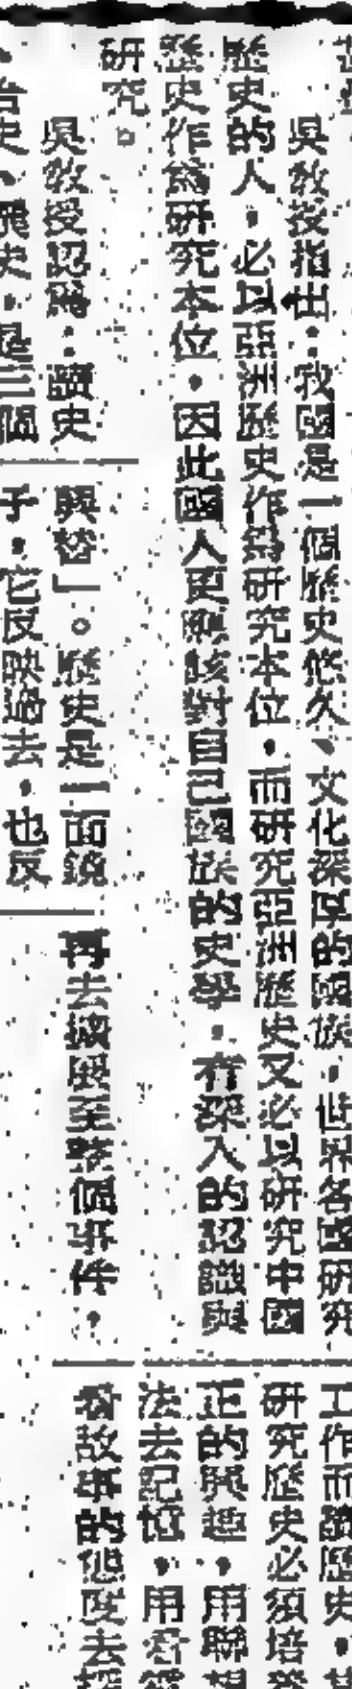 吳教授指出：我國是一個歷史悠久、文化深厚的國族，世界各國研究
歷史的人，必以亞洲歷史作為研究本位，而研究亞洲歷史又必以研究中國
歷史作為研究本位，因此國人更應該對自己國族的史學，有深入的認識與
研究。
吳教授認為：讀史
治史、釋史，是三個
興替」。歷史是一面鏡
子，它反映過去，也反
再去擴展至整個事件，
工作而讀歷史，
研究歷史必須培養
正的興趣，用聯想
法去記憶，用看
看故事的態度去